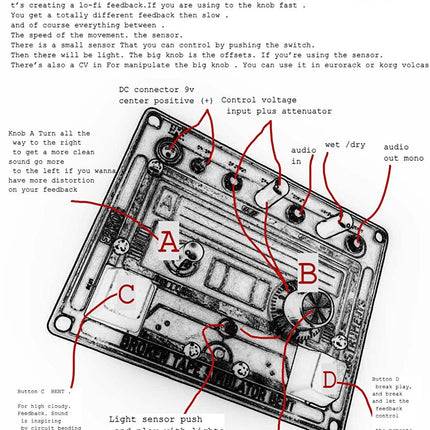 t's creating a lo-fi feedback.If you are using to the knob fast .
You get a totally different feedback then slow .
and of course everything between .
The speed of the movement. the sensor.
There is a small sensor That you can control by pushing the switch.
Then there will be light. The big knob is the offsets. If you're using the sensor.
There's also a CV in For manipulate the big knob . You can use it in eurorack or korg volcas
DC connector 9v
center positive (+)
Control voltage
input plus attenuator
Knob A Turn all the
way to the right
to get a more clean
sound go more
to the left if you wanna
have more distortion
on your feedback
audio
in
wet /dry
audio
out mono
A
B
C
D
BROKEN TAPE SIMULATOR BENT
Button C BENT .
For high cloudy.
Feedback. Sound
is inspiring
by circuit bending
Light sensor push
and play with lights
Button D
break play,
and break
and let the
feedback
control